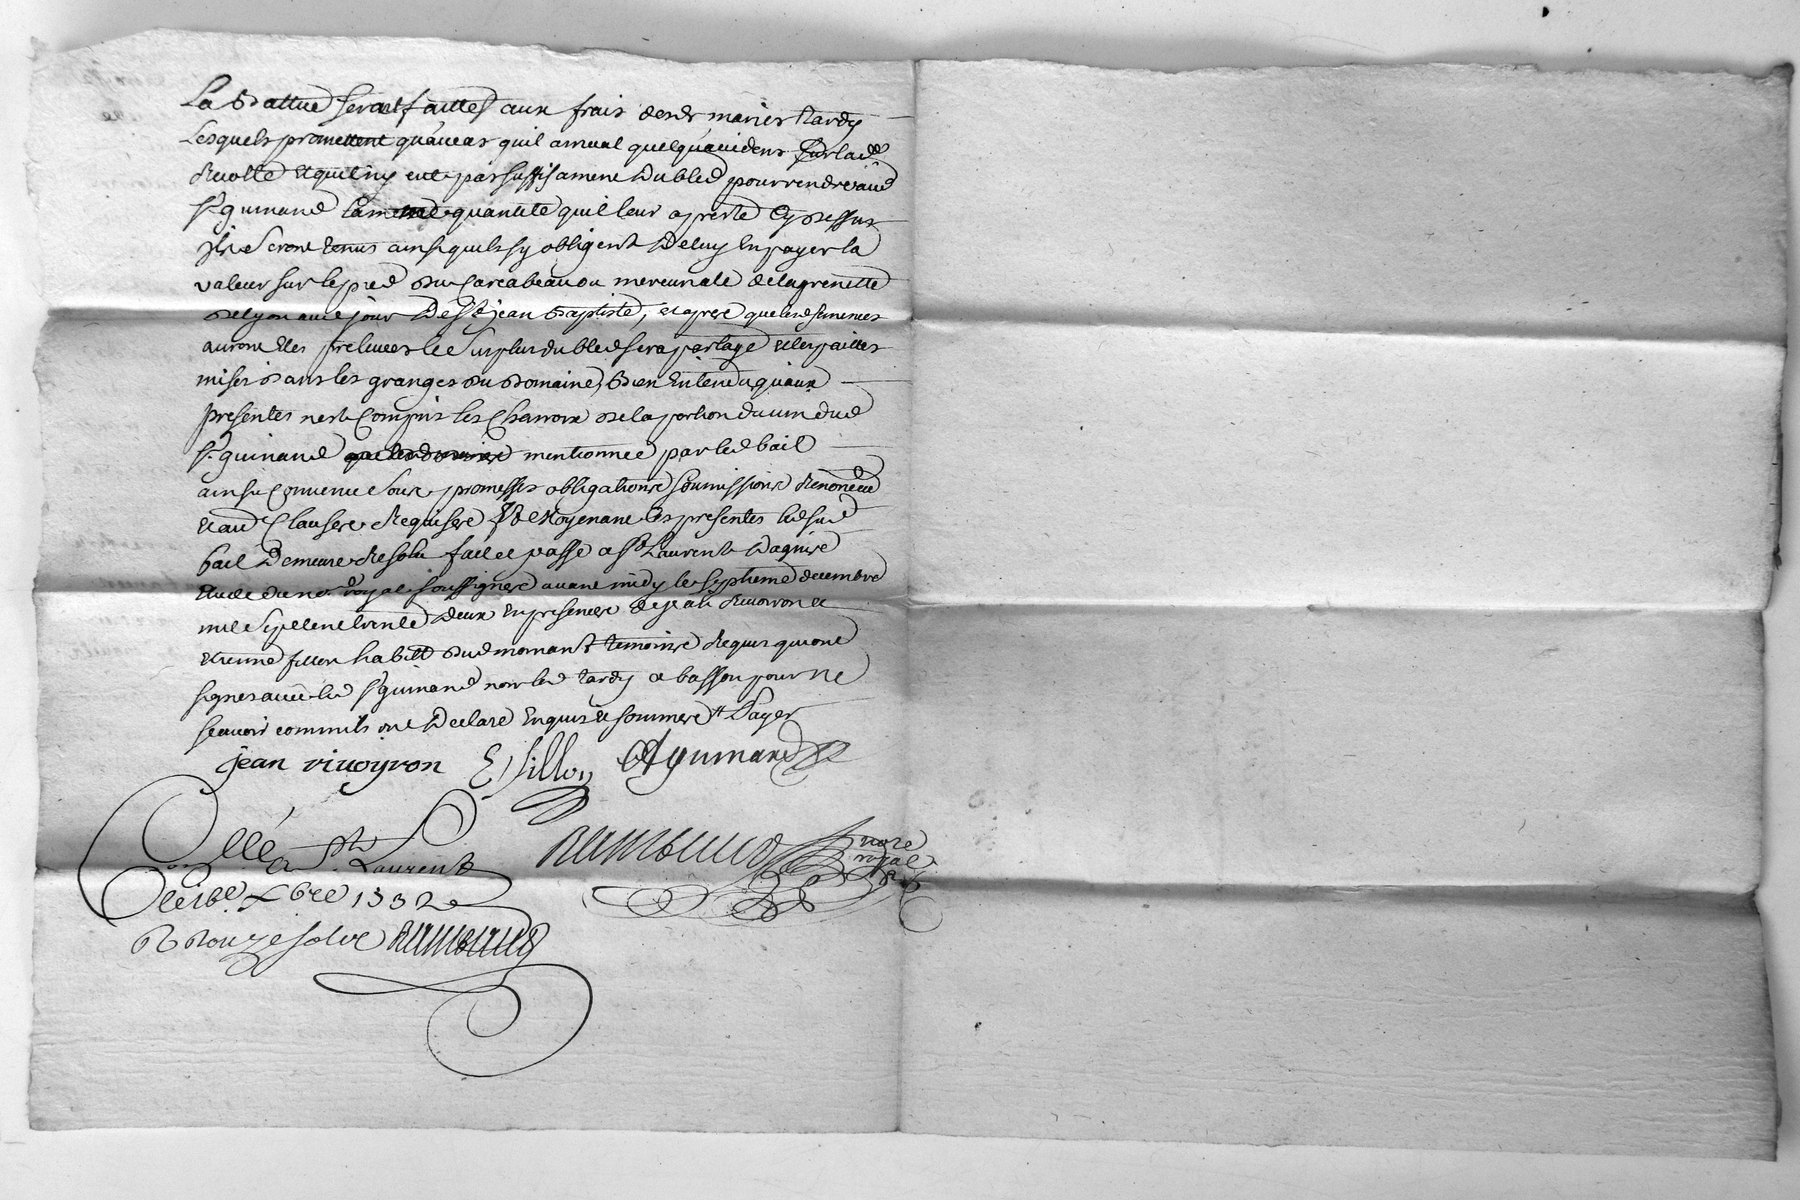 La Battue serat faittes aux frais desds mariés tardy
Lesquels promettent qu'au cas quil arrivat quelqu'accidens sur lade
Recolte et quil ny eut pas suffisament du bled pour rendre aud
sr guinand la meme quantité quil leur a presté cy dessus
ils seront tenus ainsi quils sy obligent de luy en payer la
valeur sur le pied du carcabeau ou mercuriale de la grenette
de lyon aud jour de st jean Baptiste, et apres que lesd semences
auront etés prelevées le surplus du bled sera partagé et les pailles
mises dans les granges du Domaine, Bien entendu qu'aux
presentes nest compris les charrois de la portion du vin dud
sr guinand mentionnée par led bail
ainsi convenu sous promesses obligations soumissions Renonce
et aue clauses Requises et moyenant les presentes led sud
bail Demeure Resolu fait et passé a st Laurent Dagnise
etude du nore royal soussigné avant midy le septieme decembre
mil sept cent trente deux en presence de jean Rivoiron et
etienne fillon habitt dud mornant temoins Requis qui ont
signes avec led sr guinand non led tardy a basson pour ne
scavoir commils ont Declaré enquis et sommés
jean rivoyron E fillon guinand
nore
royal
Collé a st Laurent
le xbre 1732
R solz